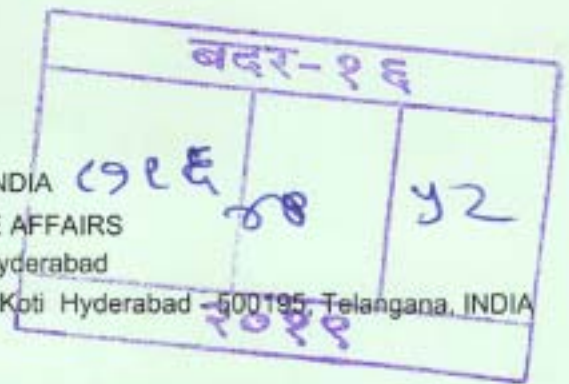 बदर-१६
NDIA
५२
E AFFAIRS
yderabad
Koti Hyderabad - 500195, Telangana, INDIA
२०१९